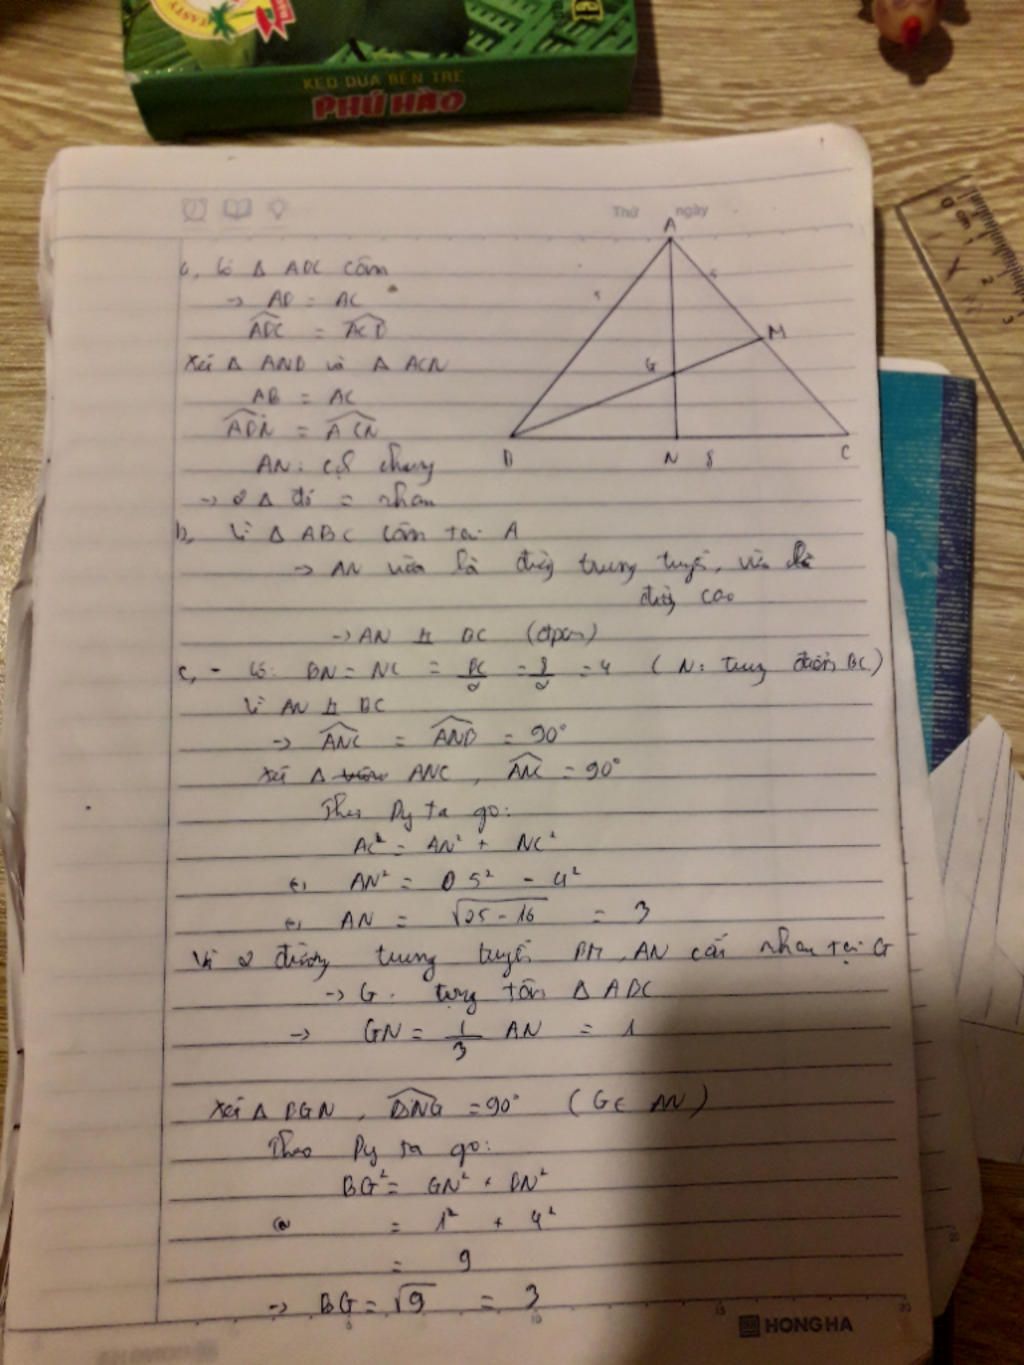 KẸO DỪA BẾN TRE
PHÚ HÀO
Thứ ngày
A
a, Có Δ ABC cân
→ AB = AC
ABC = ACB
Xét Δ ANB và Δ ACN
AB = AC
ABN = ACN
AN: cạnh chung
→ 2 Δ đó = nhau
5
5
M
G
B
N
8
C
b, Vì Δ ABC cân tại A
→ AN vừa là đường trung tuyến, vừa là
đường cao
→ AN ⊥ BC (đpcm)
c, - Có: BN = NC = BC/2 = 8/2 = 4 ( N: trung điểm BC)
Vì AN ⊥ BC
→ ANC = ANB = 90°
Xét Δ ANC , ANC = 90°
Theo Py ta go:
AC² = AN² + NC²
⇔ AN² = 5² - 4²
⇔ AN = √25 - 16 = 3
Vì 2 đường trung tuyến BM, AN cắt nhau tại G
→ G: trọng tâm Δ ABC
→ GN = 1/3 AN = 1
Xét Δ BGN , BNG = 90° ( G ∈ AN )
Theo Py ta go:
BG² = GN² + BN²
= 1² + 4²
= 9
→ BG = √9 = 3
5
10
15
20
HONG HA